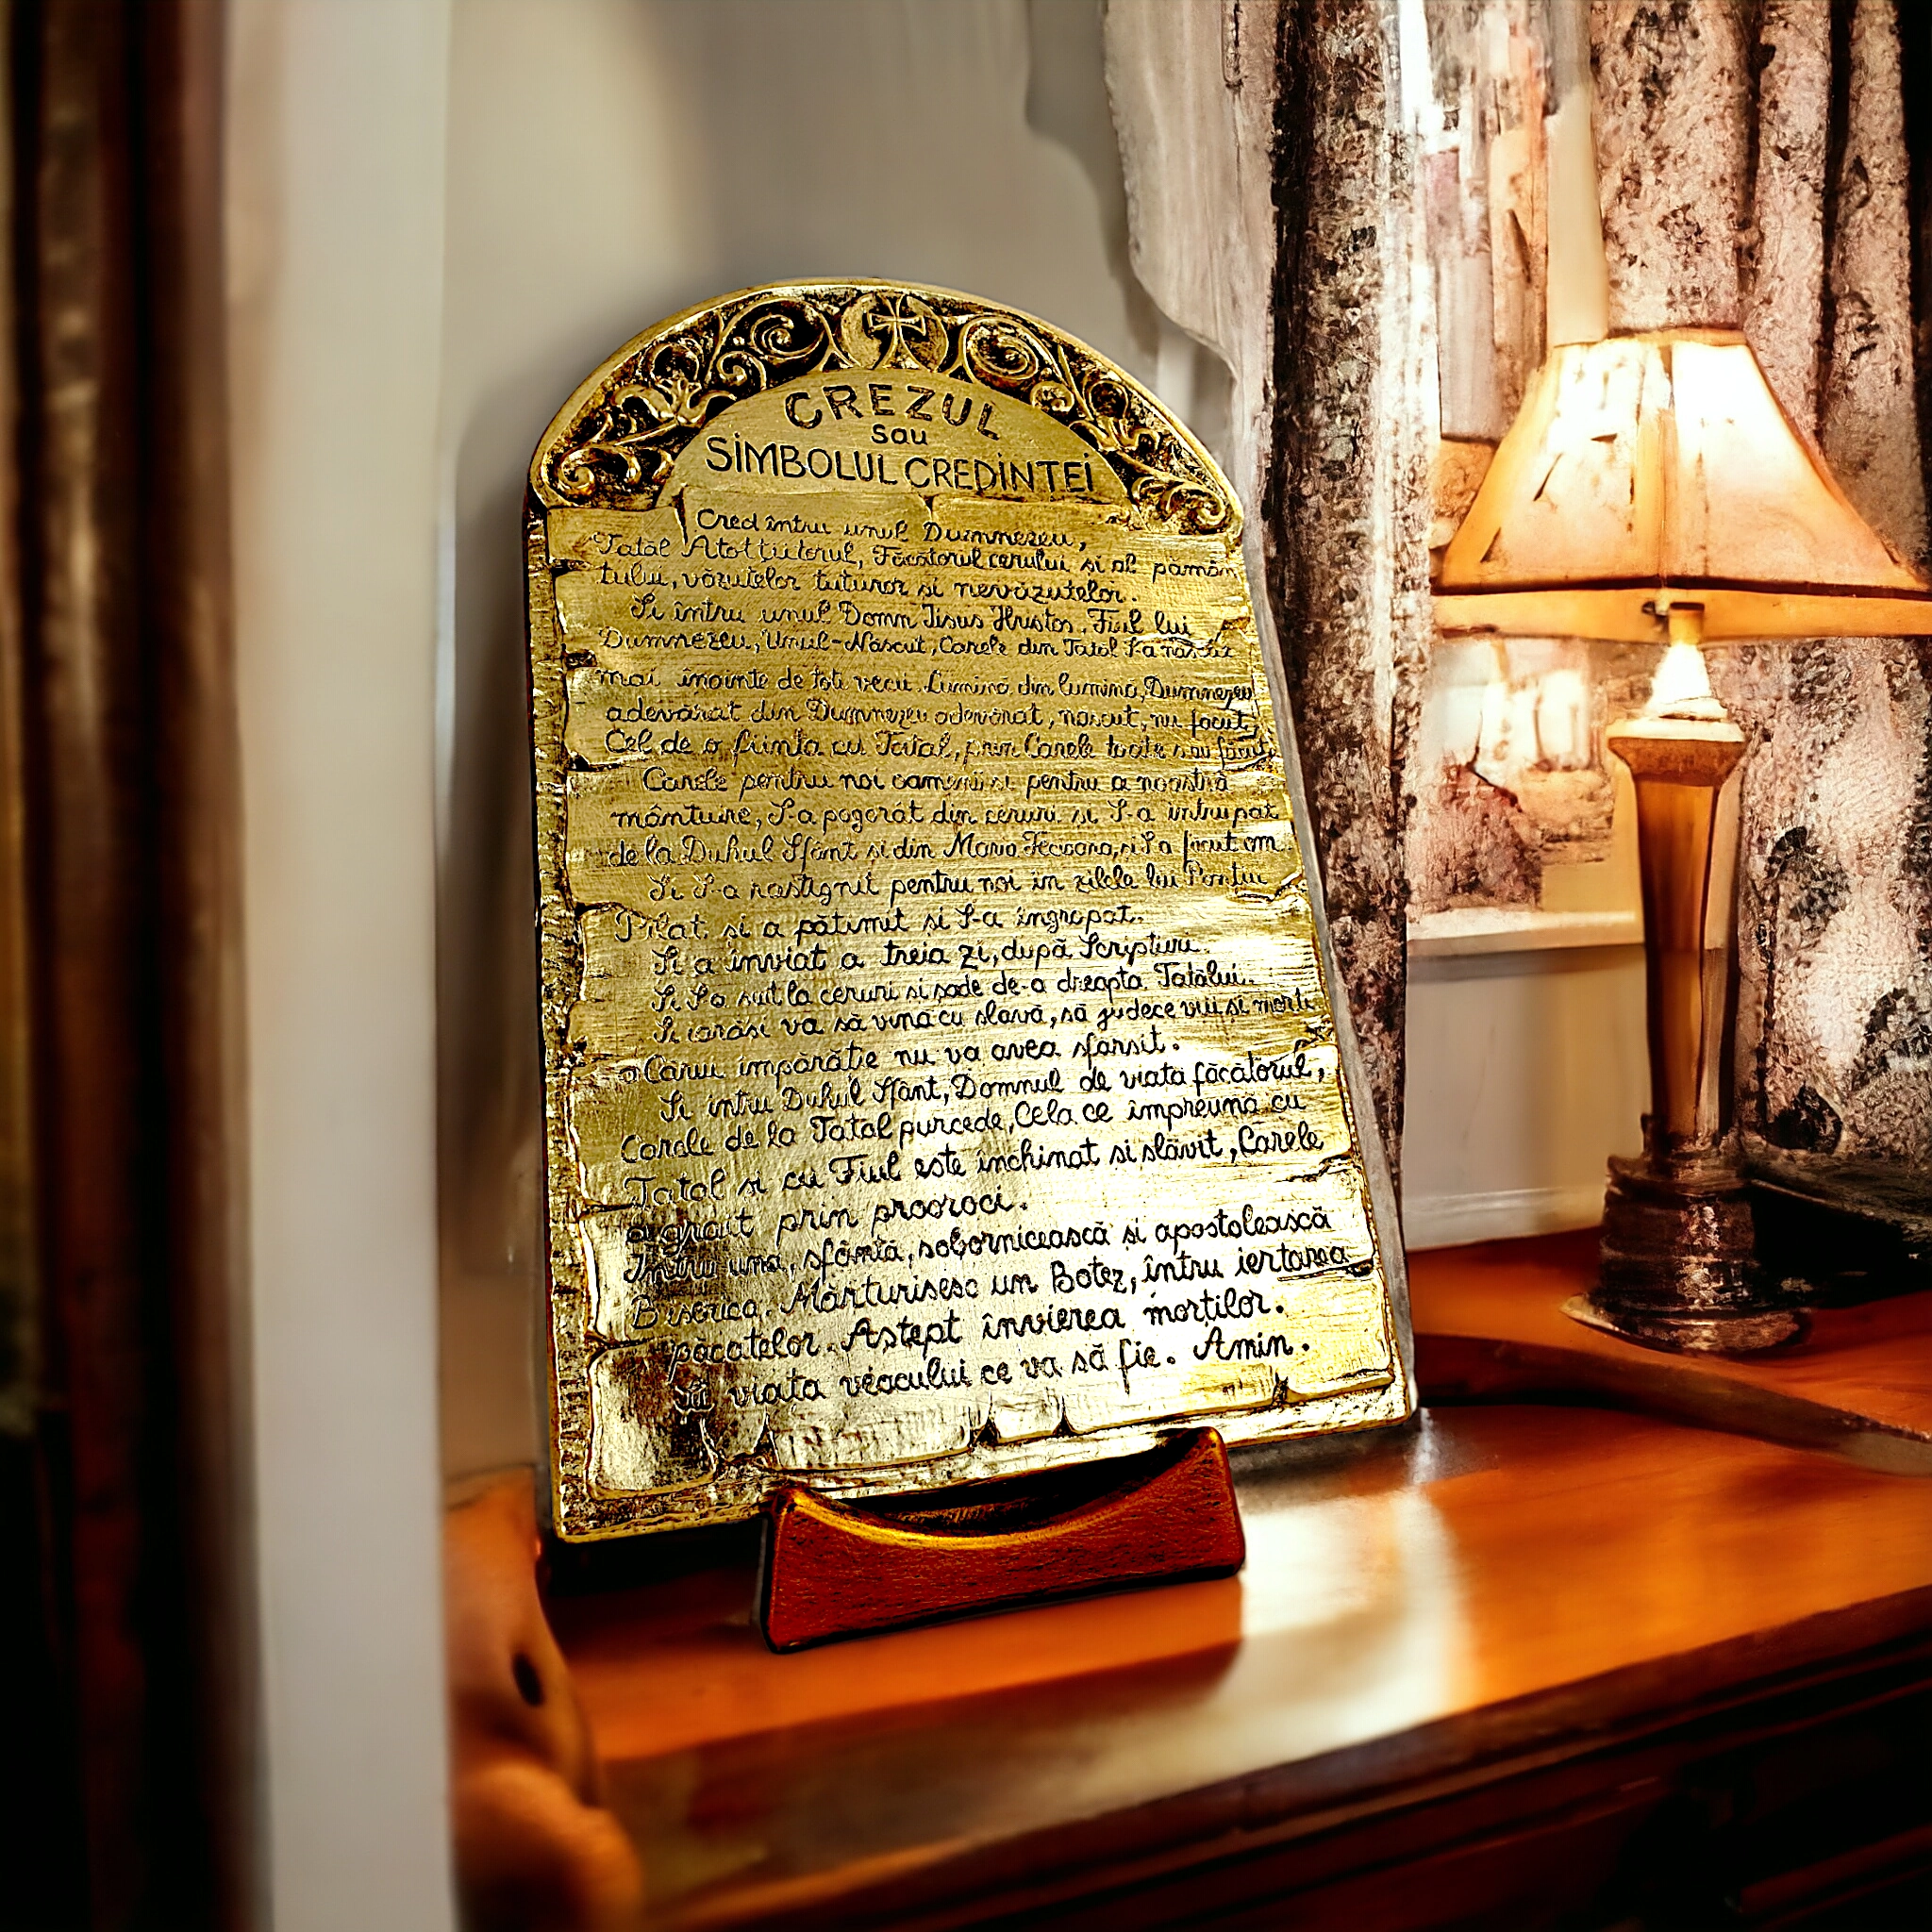 CREZUL
sau
SIMBOLUL CREDINTEI
Cred întru unul Dumnezeu,
Tatăl Atotțiitorul, Făcătorul cerului si al pămân
tului, văzutelor tuturor si nevăzutelor.
Si întru unul Domn Iisus Hristos, Fiul lui
Dumnezeu, Unul-Născut, Carele din Tatăl S-a născut
mai înainte de toti vecii. Lumină din lumină, Dumnezeu
adevărat din Dumnezeu adevărat, născut, nu făcut,
Cel de o fiinta cu Tatal, prin Carele toate s-au făcut.
Carele pentru noi oamenii si pentru a noastră
mântuire, S-a pogorât din ceruri si S-a intrupat
de la Duhul Sfânt si din Maria Fecioara, si S-a facut om.
Si S-a rastignit pentru noi in zilele lui Pontiu
Pilat. si a pătimit si S-a îngropat.
Si a înviat a treia zi, după Scripturi.
Si S-a suit la ceruri si sade de-a dreapta Tatălui.
Si iarăsi va să vină cu slavă, să judece viii si mortii
a Cărui împărătie nu va avea sfarsit.
Si intru Duhul Sfânt, Domnul de viata făcătorul,
Carele de la Tatal purcede, Cela ce împreună cu
Tatal si cu Fiul este închinat si slăvit, Carele
a grait prin prooroci.
Intru una, sfântă, sobornicească si apostolească
Biserica. Mărturisesc un Botez, întru iertarea
păcatelor. Astept învierea morților.
Si viata veacului ce va să fie. Amin.